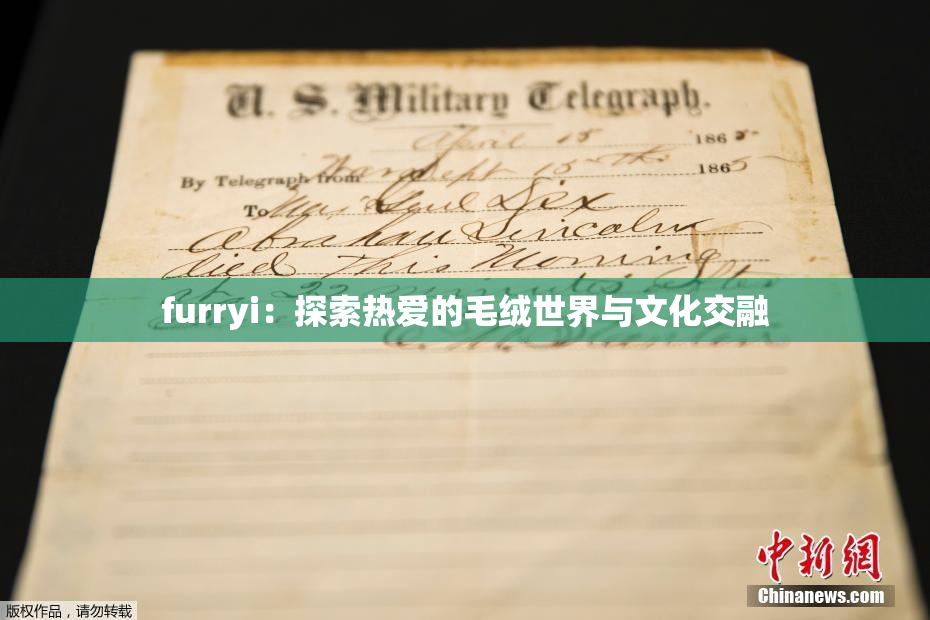 U. S. Military Telegraph.
April 15 1865
By Telegraph from War Dept 15th 1865
To Maj Genl Dix
Abraham Lincoln
died This Morning
at 22 minutes after
furryi：探索热爱的毛绒世界与文化交融
E. M. Stanton
中新网
Chinanews.com
版权作品，请勿转载